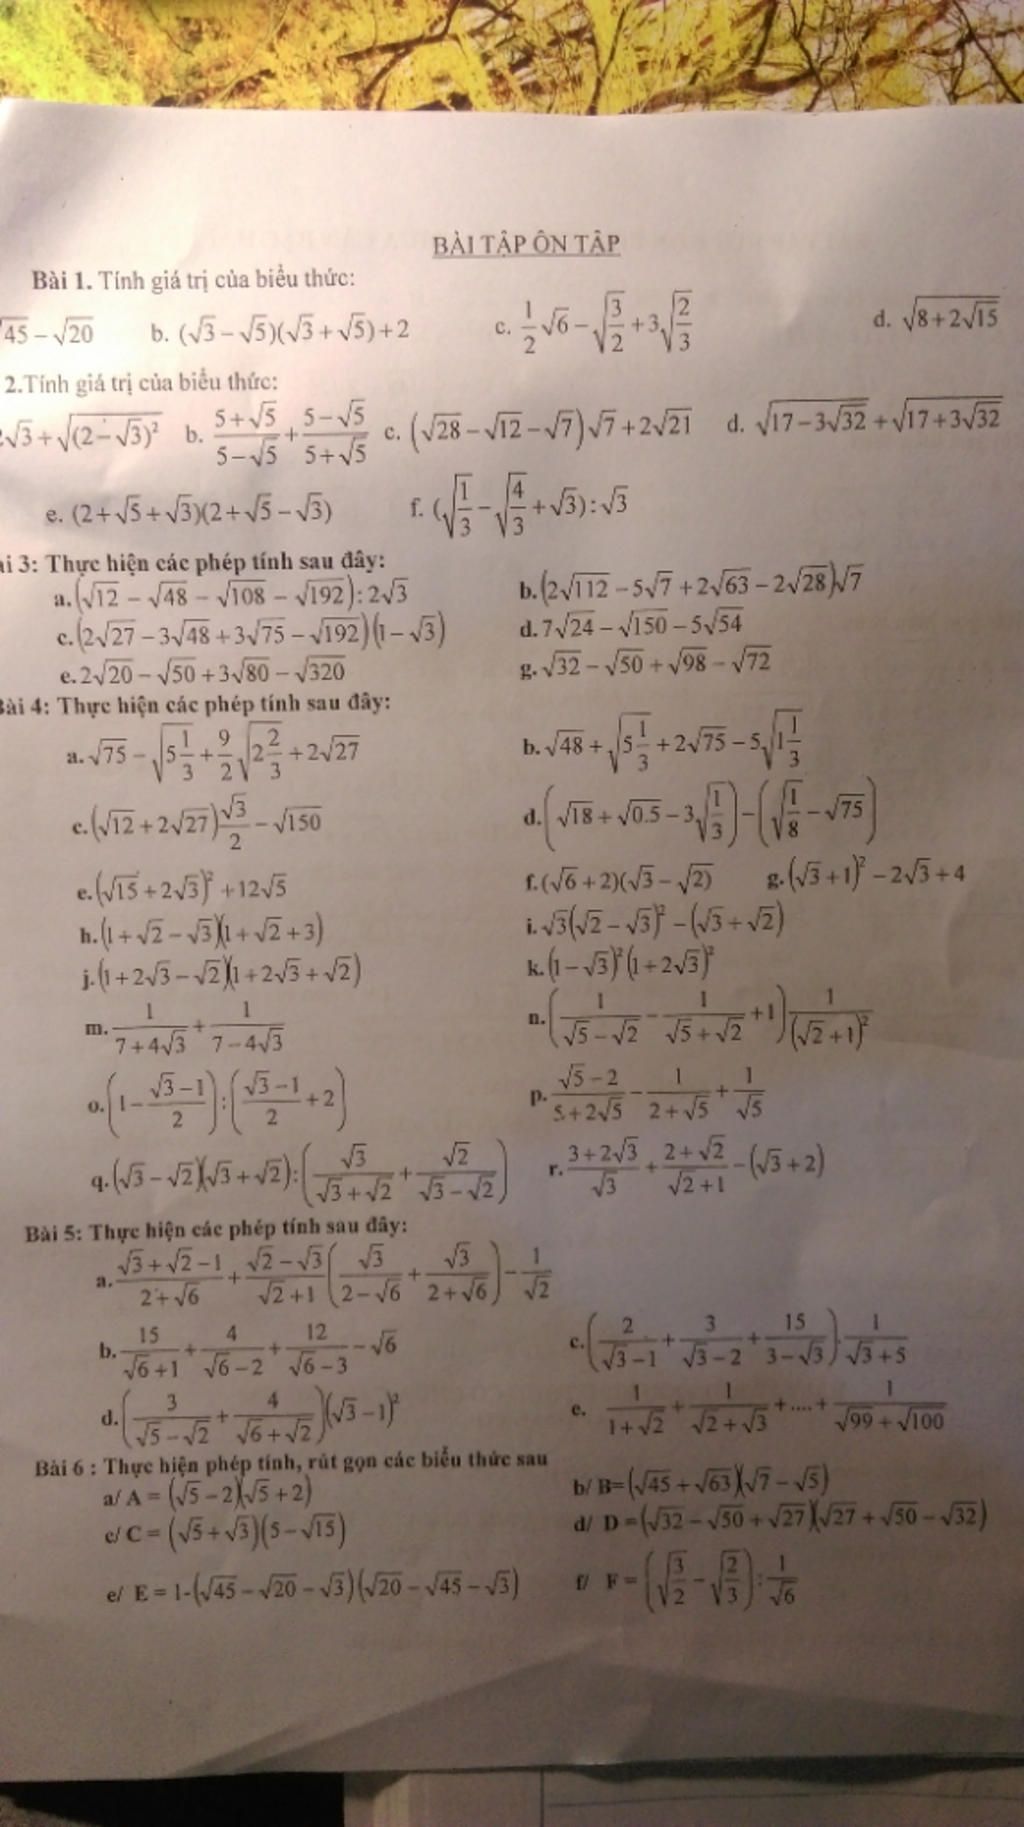 BÀI TẬP ÔN TẬP
Bài 1. Tính giá trị của biểu thức:
√45 − √20 b. (√3 − √5)(√3 + √5) + 2 c. 1/2 √6 − √(3/2) + 3√(2/3) d. √(8 + 2√15)
2.Tính giá trị của biểu thức:
√3 + √((2 − √3)²) b. (5 + √5)/(5 − √5) + (5 − √5)/(5 + √5) c. (√28 − √12 − √7)√7 + 2√21 d. √(17 − 3√32) + √(17 + 3√32)
e. (2 + √5 + √3)(2 + √5 − √3) f. (√(1/3) − √(4/3) + √3) : √3
i 3: Thực hiện các phép tính sau đây:
a. (√12 − √48 − √108 − √192) : 2√3 b. (2√112 − 5√7 + 2√63 − 2√28)√7
c. (2√27 − 3√48 + 3√75 − √192)(1 − √3) d. 7√24 − √150 − 5√54
e. 2√20 − √50 + 3√80 − √320 g. √32 − √50 + √98 − √72
Bài 4: Thực hiện các phép tính sau đây:
a. √75 − √(5 1/3) + 9/2 √(2 2/3) + 2√27 b. √48 + √(5 1/3) + 2√75 − 5√(1 1/3)
c. (√12 + 2√27) √3/2 − √150 d. (√18 + √0.5 − 3√(1/3)) − (√(1/8) − √75)
e. (√15 + 2√3)² + 12√5 f. (√6 + 2)(√3 − √2) g. (√3 + 1)² − 2√3 + 4
h. (1 + √2 − √3)(1 + √2 + 3) i. √3(√2 − √3)² − (√3 + √2)
j. (1 + 2√3 − √2)(1 + 2√3 + √2) k. (1 − √3)²(1 + 2√3)²
m. 1/(7 + 4√3) + 1/(7 − 4√3) n. (1/(√5 − √2) − 1/(√5 + √2) + 1) 1/(√2 + 1)²
o. (1 − (√3 − 1)/2) : ((√3 − 1)/2 + 2) p. (√5 − 2)/(5 + 2√5) − 1/(2 + √5) + 1/√5
q. (√3 − √2)(√3 + √2) : (√3/(√3 + √2) + √2/(√3 − √2)) r. (3 + 2√3)/√3 + (2 + √2)/(√2 + 1) − (√3 + 2)
Bài 5: Thực hiện các phép tính sau đây:
a. (√3 + √2 − 1)/(2 + √6) + (√2 − √3)/(√2 + 1) (√3/(2 − √6) + √3/(2 + √6)) − 1/√2
b. 15/(√6 + 1) + 4/(√6 − 2) + 12/(√6 − 3) − √6 c. (2/(√3 − 1) + 3/(√3 − 2) + 15/(3 − √3)) . 1/(√3 + 5)
d. (3/(√5 − √2) + 4/(√6 + √2))(√3 − 1)² e. 1/(1 + √2) + 1/(√2 + √3) + .... + 1/(√99 + √100)
Bài 6 : Thực hiện phép tính, rút gọn các biểu thức sau
a/ A = (√5 − 2)(√5 + 2) b/ B= (√45 + √63)(√7 − √5)
c/ C = (√5 + √3)(5 − √15) d/ D = (√32 − √50 + √27)(√27 + √50 − √32)
e/ E = 1-(√45 − √20 − √3)(√20 − √45 − √3) f/ F = (√(3/2) − √(2/3)) : 1/√6